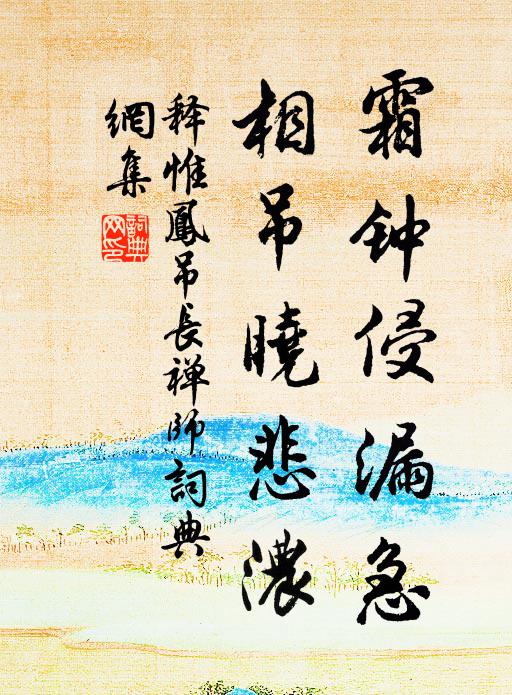 霜钟侵漏急
相吊曉悲濃
释惟鳳吊長禅师詞典
網集
詞典网印